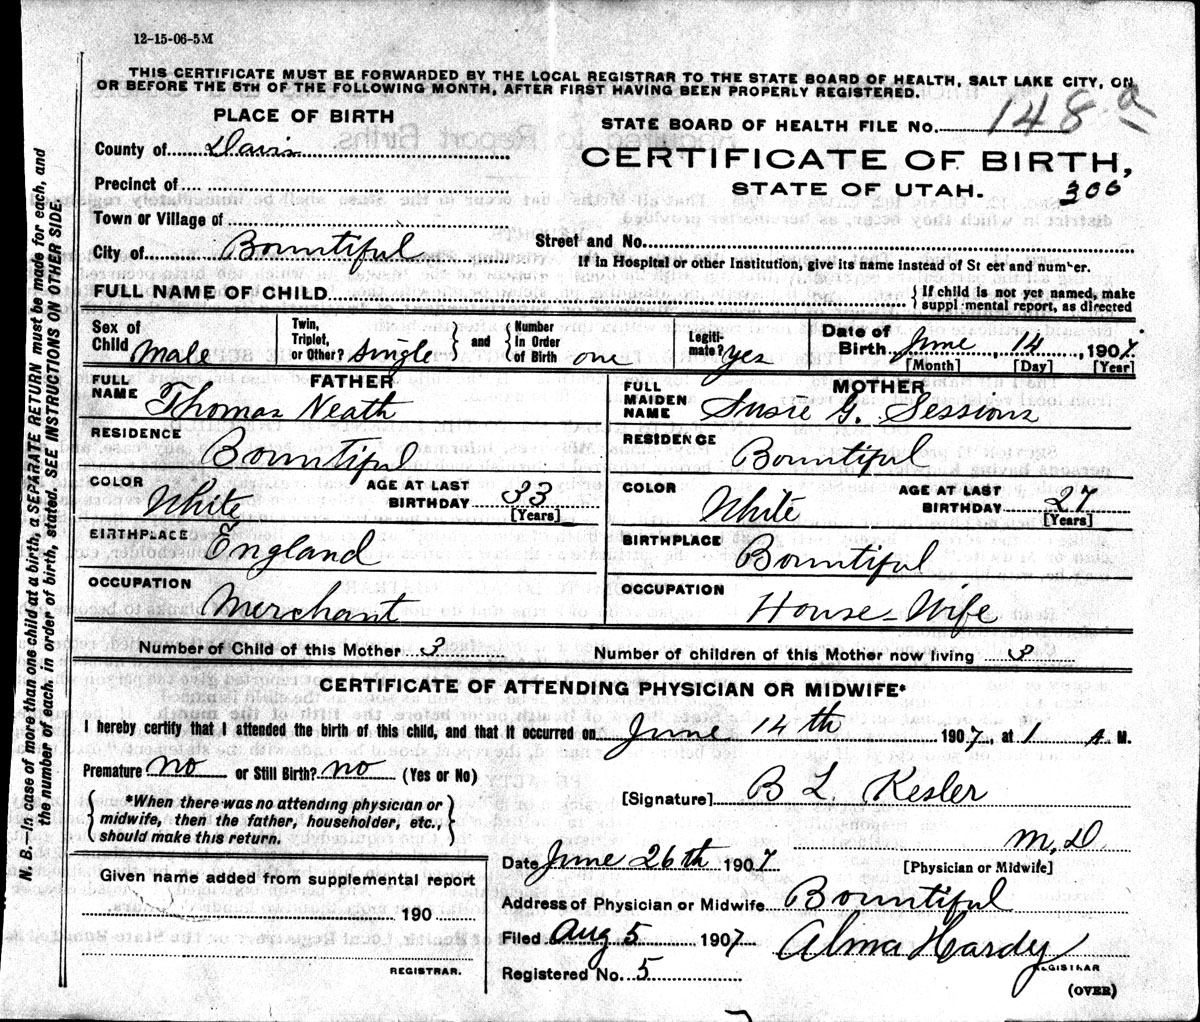 12-15-06-5M
THIS CERTIFICATE MUST BE FORWARDED BY THE LOCAL REGISTRAR TO THE STATE BOARD OF HEALTH, SALT LAKE CITY, ON
OR BEFORE THE 5TH OF THE FOLLOWING MONTH, AFTER FIRST HAVING BEEN PROPERLY REGISTERED.
PLACE OF BIRTH
STATE BOARD OF HEALTH FILE No. 148 a
County of Davis
CERTIFICATE OF BIRTH,
Precinct of
STATE OF UTAH. 306
Town or Village of
City of Bountiful
Street and No.
If in Hospital or other Institution, give its name instead of St eet and number.
FULL NAME OF CHILD { If child is not yet named, make
suppl mental report, as directed
Sex of Child Male
Twin, Triplet, or Other? Single } and { Number in Order of Birth one
Legiti-mate? yes
Date of Birth June 14, 1907
[Month] [Day] [Year]
FATHER
FULL NAME Thomas Neath
MOTHER
FULL MAIDEN NAME Susie G. Sessions
RESIDENCE Bountiful
RESIDENCE Bountiful
COLOR White AGE AT LAST BIRTHDAY 33 [Years]
COLOR White AGE AT LAST BIRTHDAY 27 [Years]
BIRTHPLACE England
BIRTHPLACE Bountiful
OCCUPATION Merchant
OCCUPATION House-Wife
Number of Child of this Mother 3
Number of children of this Mother now living 3
CERTIFICATE OF ATTENDING PHYSICIAN OR MIDWIFE*
I hereby certify that I attended the birth of this child, and that it occurred on June 14th 1907, at 1 A. M.
Premature no or Still Birth? no (Yes or No)
[Signature] B L. Kesler
{ *When there was no attending physician or
midwife, then the father, householder, etc.,
should make this return. }
M.D.
[Physician or Midwife]
Date June 26th 1907
Given name added from supplemental report
190
REGISTRAR.
Address of Physician or Midwife Bountiful
Filed Aug 5 1907 Alma Hardy
REGISTRAR
Registered No. 5
(OVER)
N. B.—In case of more than one child at a birth, a SEPARATE RETURN must be made for each, and
the number of each, in order of birth, stated. SEE INSTRUCTIONS ON OTHER SIDE.